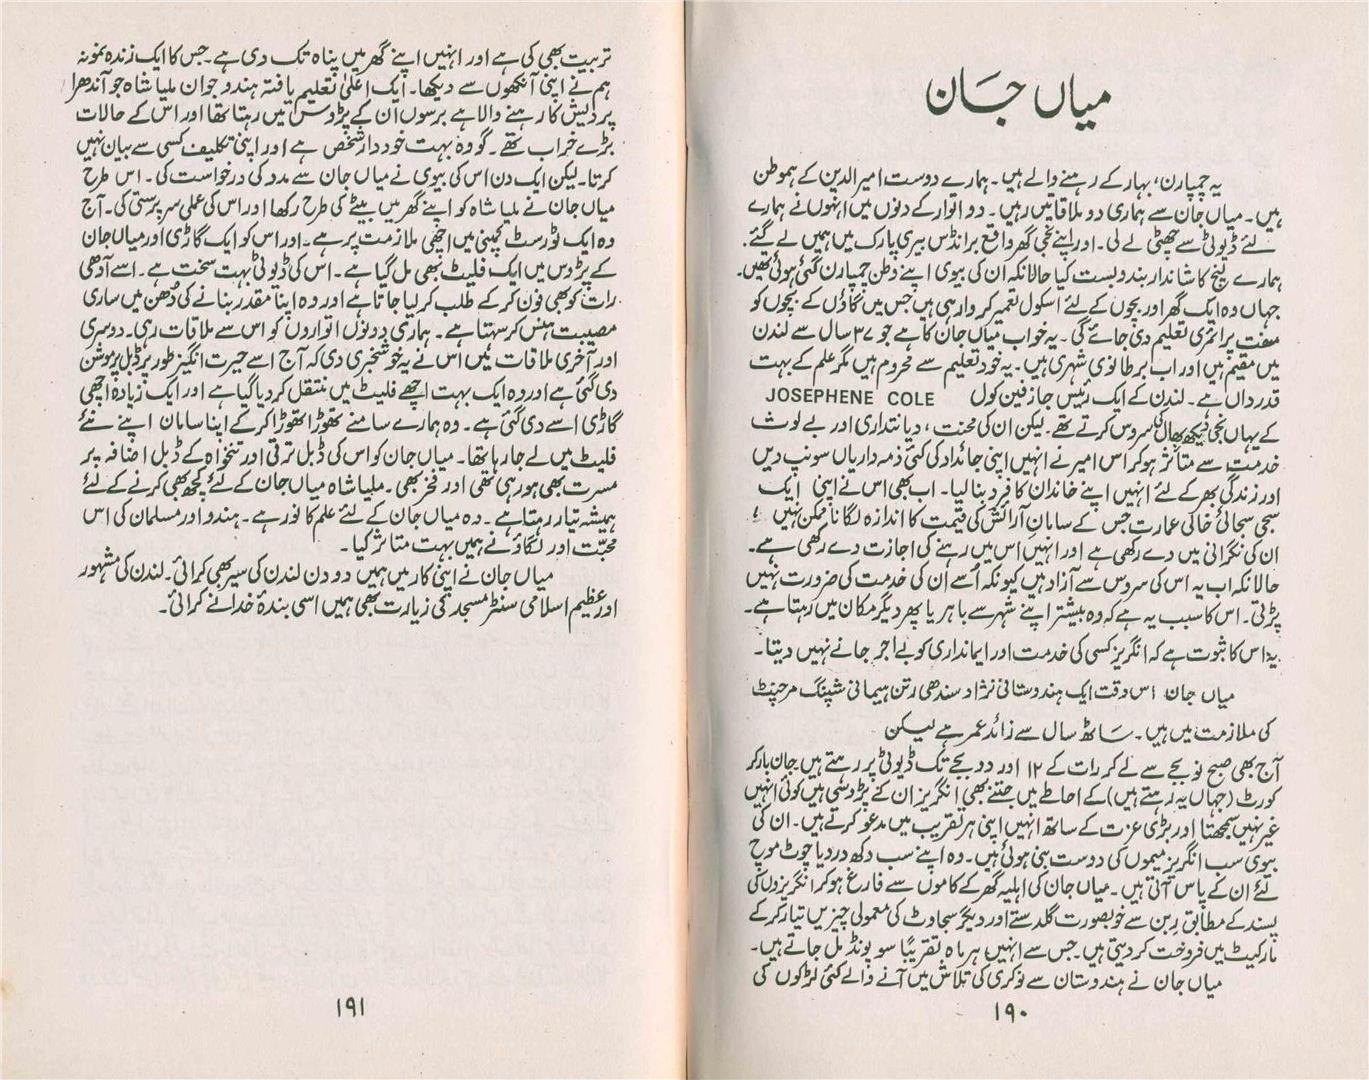 میاں جان
یہ چمپارن، بہار کے رہنے والے ہیں۔ ہمارے دوست امیر الدین کے ہموطن
ہیں۔ میاں جان سے ہماری دو ملاقاتیں رہیں۔ دو اتوار کے دنوں میں انہوں نے ہمارے
لئے ڈیوٹی سے چھٹی لے لی۔ اور اپنے نجی گھر واقع برانڈس بیری پارک میں ہمیں لے گئے۔
ہمارے لنچ کا شاندار بندوبست کیا حالانکہ ان کی بیوی اپنے وطن چمپارن گئی ہوئی تھیں۔
جہاں وہ ایک گھر اور بچوں کے لئے اسکول تعمیر کروا رہی ہیں جس میں گاؤں کے بچوں کو
مفت پرائمری تعلیم دی جائے گی۔ یہ خواب میاں جان کا ہے جو ۳۷ سال سے لندن
میں مقیم ہیں اور اب برطانوی شہری ہیں۔ یہ خود تعلیم سے محروم ہیں مگر علم کے بہت
قدرداں ہے۔ لندن کے ایک رئیس جازفین کول JOSEPHENE COLE
کے یہاں نجی دیکھ بھال کی سروس کرتے تھے۔ لیکن ان کی محنت، دیانتداری اور بے لوث
خدمت سے متاثر ہوکر اس امیر نے انہیں اپنی جائداد کی کئی ذمہ داریاں سونپ دیں
اور زندگی بھر کے لئے انہیں اپنے خاندان کا فرد بنا لیا۔ اب بھی اس نے اپنی ایک
سجی سجائی خالی عمارت جس کے سامانِ آرائش کی قیمت کا اندازہ لگانا ناممکن نہیں،
ان کی نگرانی میں دے رکھی ہے اور انہیں اس میں رہنے کی اجازت دے رکھی ہے۔
حالانکہ اب یہ اس کی سروس سے آزاد ہیں کیونکہ اُسے ان کی خدمت کی ضرورت نہیں
پڑتی۔ اس کا سبب یہ ہے کہ وہ بیشتر اپنے شہر سے باہر یا پھر دیگر مکان میں رہتا ہے۔
یہ اس کا ثبوت ہے کہ انگریز کسی کی خدمت اور ایمانداری کو بے اجر جانے نہیں دیتا۔
میاں جان اس وقت ایک ہندوستانی نژاد سندھی رتن ہیمانی شپنگ مرچنٹ
کی ملازمت میں ہیں۔ ساٹھ سال سے زائد عمر ہے لیکن
آج بھی صبح نو بجے سے لے کر رات کے ۱۲ اور دو بجے تک ڈیوٹی پر رہتے ہیں جان بارکر
کورٹ (جہاں یہ رہتے ہیں) کے احاطے میں جتنے بھی انگریز ان کے پڑوسی ہیں کوئی انہیں
غیر نہیں سمجھتا اور بڑی عزت کے ساتھ انہیں اپنی ہر تقریب میں مدعو کرتے ہیں۔ ان کی
بیوی سب انگریز میموں کی دوست بنی ہوئی ہیں۔ وہ اپنے سب دکھ درد یا چوٹ موچ
لئے ان کے پاس آتی ہیں۔ میاں جان کی اہلیہ گھر کے کاموں سے فارغ ہوکر انگریزوں کی
پسند کے مطابق ربن سے خوبصورت گلدستے اور دیگر سجاوٹ کی معمولی چیزیں تیار کر کے
مارکیٹ میں فروخت کر دیتی ہیں۔ جس سے انہیں ہر ماہ تقریباً سو پونڈ مل جاتے ہیں۔
میاں جان نے ہندوستان سے نوکری کی تلاش میں آنے والے کئی لڑکوں کی
۱۹۰
تربیت بھی کی ہے اور انہیں اپنے گھر میں پناہ تک دی ہے۔ جس کا ایک زندہ نمونہ
ہم نے اپنی آنکھوں سے دیکھا۔ ایک اعلیٰ تعلیم یافتہ ہندو جوان ملیا شاہ جو آندھرا
پردیش کا رہنے والا ہے برسوں ان کے پڑوس میں رہتا تھا اور اس کے حالات
بڑے خراب تھے۔ گو وہ بہت خوددار شخص ہے اور اپنی تکلیف کسی سے بیان نہیں
کرتا۔ لیکن ایک دن اس کی بیوی نے میاں جان سے مدد کی درخواست کی۔ اس طرح
میاں جان نے ملیا شاہ کو اپنے گھر میں بیٹے کی طرح رکھا اور اس کی عملی سرپرستی کی۔ آج
وہ ایک ٹورسٹ کمپنی میں اچھی ملازمت پر ہے۔ اور اس کو ایک گاڑی اور میاں جان
کے پڑوس میں ایک فلیٹ بھی مل گیا ہے۔ اس کی ڈیوٹی بہت سخت ہے۔ اسے آدھی
رات کو بھی فون کر کے طلب کر لیا جاتا ہے اور وہ اپنا مقدر بنانے کی دُھن میں ساری
مصیبت ہنس کر سہتا ہے۔ ہماری دونوں اتواروں کو اس سے ملاقات رہی۔ دوسری
اور آخری ملاقات میں اس نے یہ خوشخبری دی کہ آج اسے حیرت انگیز طور پر ڈبل پرموشن
دی گئی ہے اور وہ ایک بہت اچھے فلیٹ میں منتقل کر دیا گیا ہے اور ایک زیادہ اچھی
گاڑی اسے دی گئی ہے۔ وہ ہمارے سامنے تھوڑا تھوڑا کر کے اپنا سامان اپنے نئے
فلیٹ میں لے جا رہا تھا۔ میاں جان کو اس کی ڈبل ترقی اور تنخواہ کے ڈبل اضافہ پر
مسرت بھی ہو رہی تھی اور فخر بھی۔ ملیا شاہ میاں جان کے لئے کچھ بھی کرنے کے لئے
ہمیشہ تیار رہتا ہے۔ وہ میاں جان کے لئے علم کا نور ہے۔ ہندو اور مسلمان کی اس
محبّت اور لگاؤ نے ہمیں بہت متاثر کیا۔
میاں جان نے اپنی کار میں ہمیں دو دن لندن کی سیر بھی کرائی۔ لندن کی مشہور
اور عظیم اسلامی سنٹر مسجد کی زیارت بھی ہمیں اسی بندۂ خدا نے کرائی۔
۱۹۱